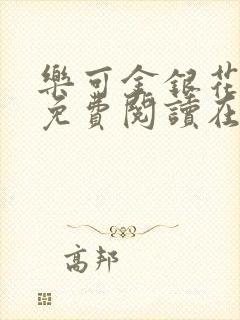 樂可金銀花
免費閱讀在
高邦